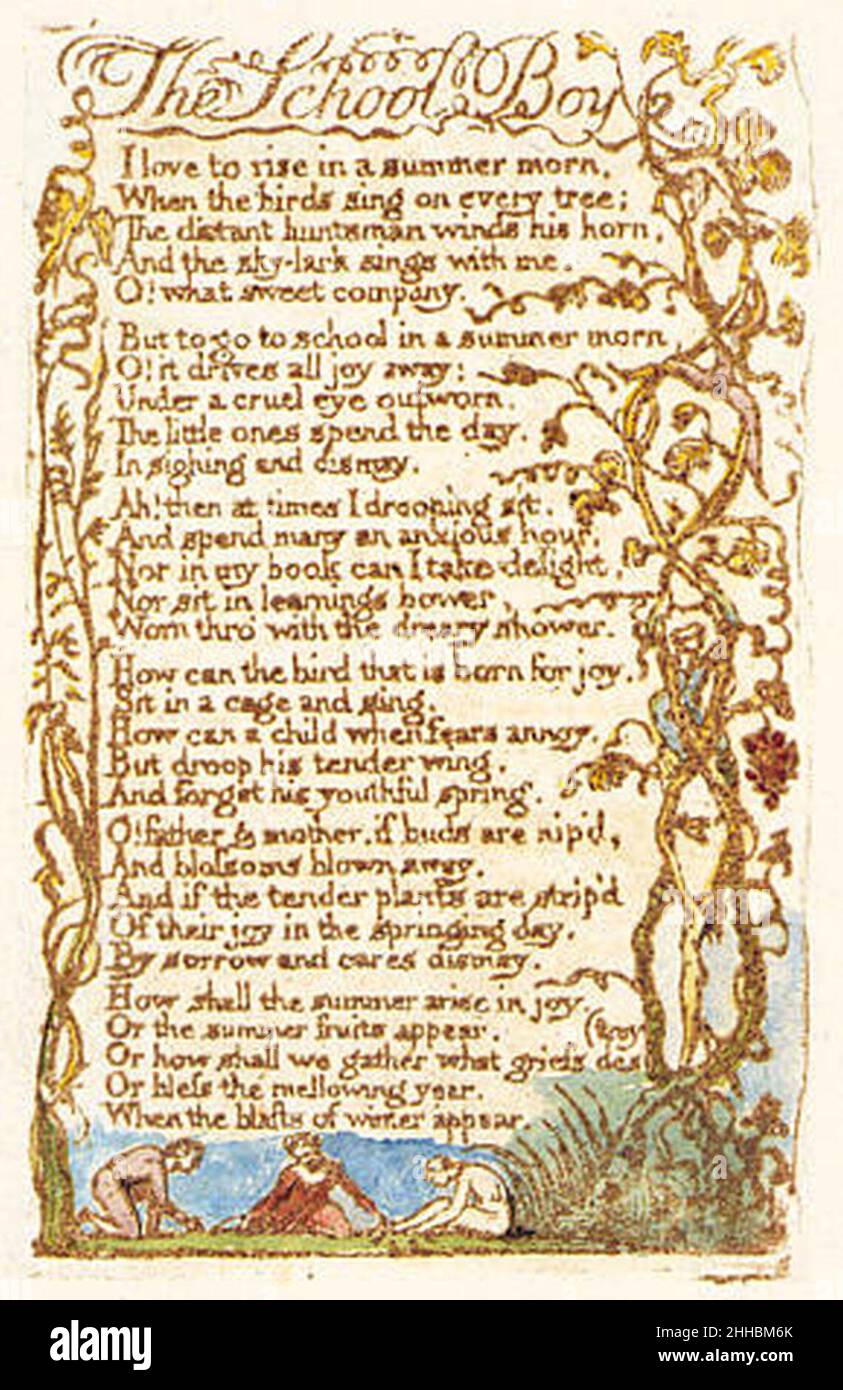 The School Boy
I love to rise in a summer morn,
When the birds sing on every tree;
The distant huntsman winds his horn,
And the sky-lark sings with me.
O! what sweet company.
But to go to school in a summer morn,
O! it drives all joy away;
Under a cruel eye outworn,
The little ones spend the day,
In sighing and dismay.
Ah! then at times I drooping sit,
And spend many an anxious hour,
Nor in my book can I take delight,
Nor sit in learnings bower,
Worn thro' with the dreary shower.
How can the bird that is born for joy,
Sit in a cage and sing.
How can a child when fears annoy,
But droop his tender wing,
And forget his youthful spring.
O! father & mother, if buds are nip'd,
And blossoms blown away,
And if the tender plants are strip'd
Of their joy in the springing day,
By sorrow and cares dismay,
How shall the summer arise in joy,
Or the summer fruits appear,
(troy
Or how shall we gather what griefs des
Or bless the mellowing year,
When the blasts of winter appear.
a
alamy
Image ID: 2HHBM6K
www.alamy.com